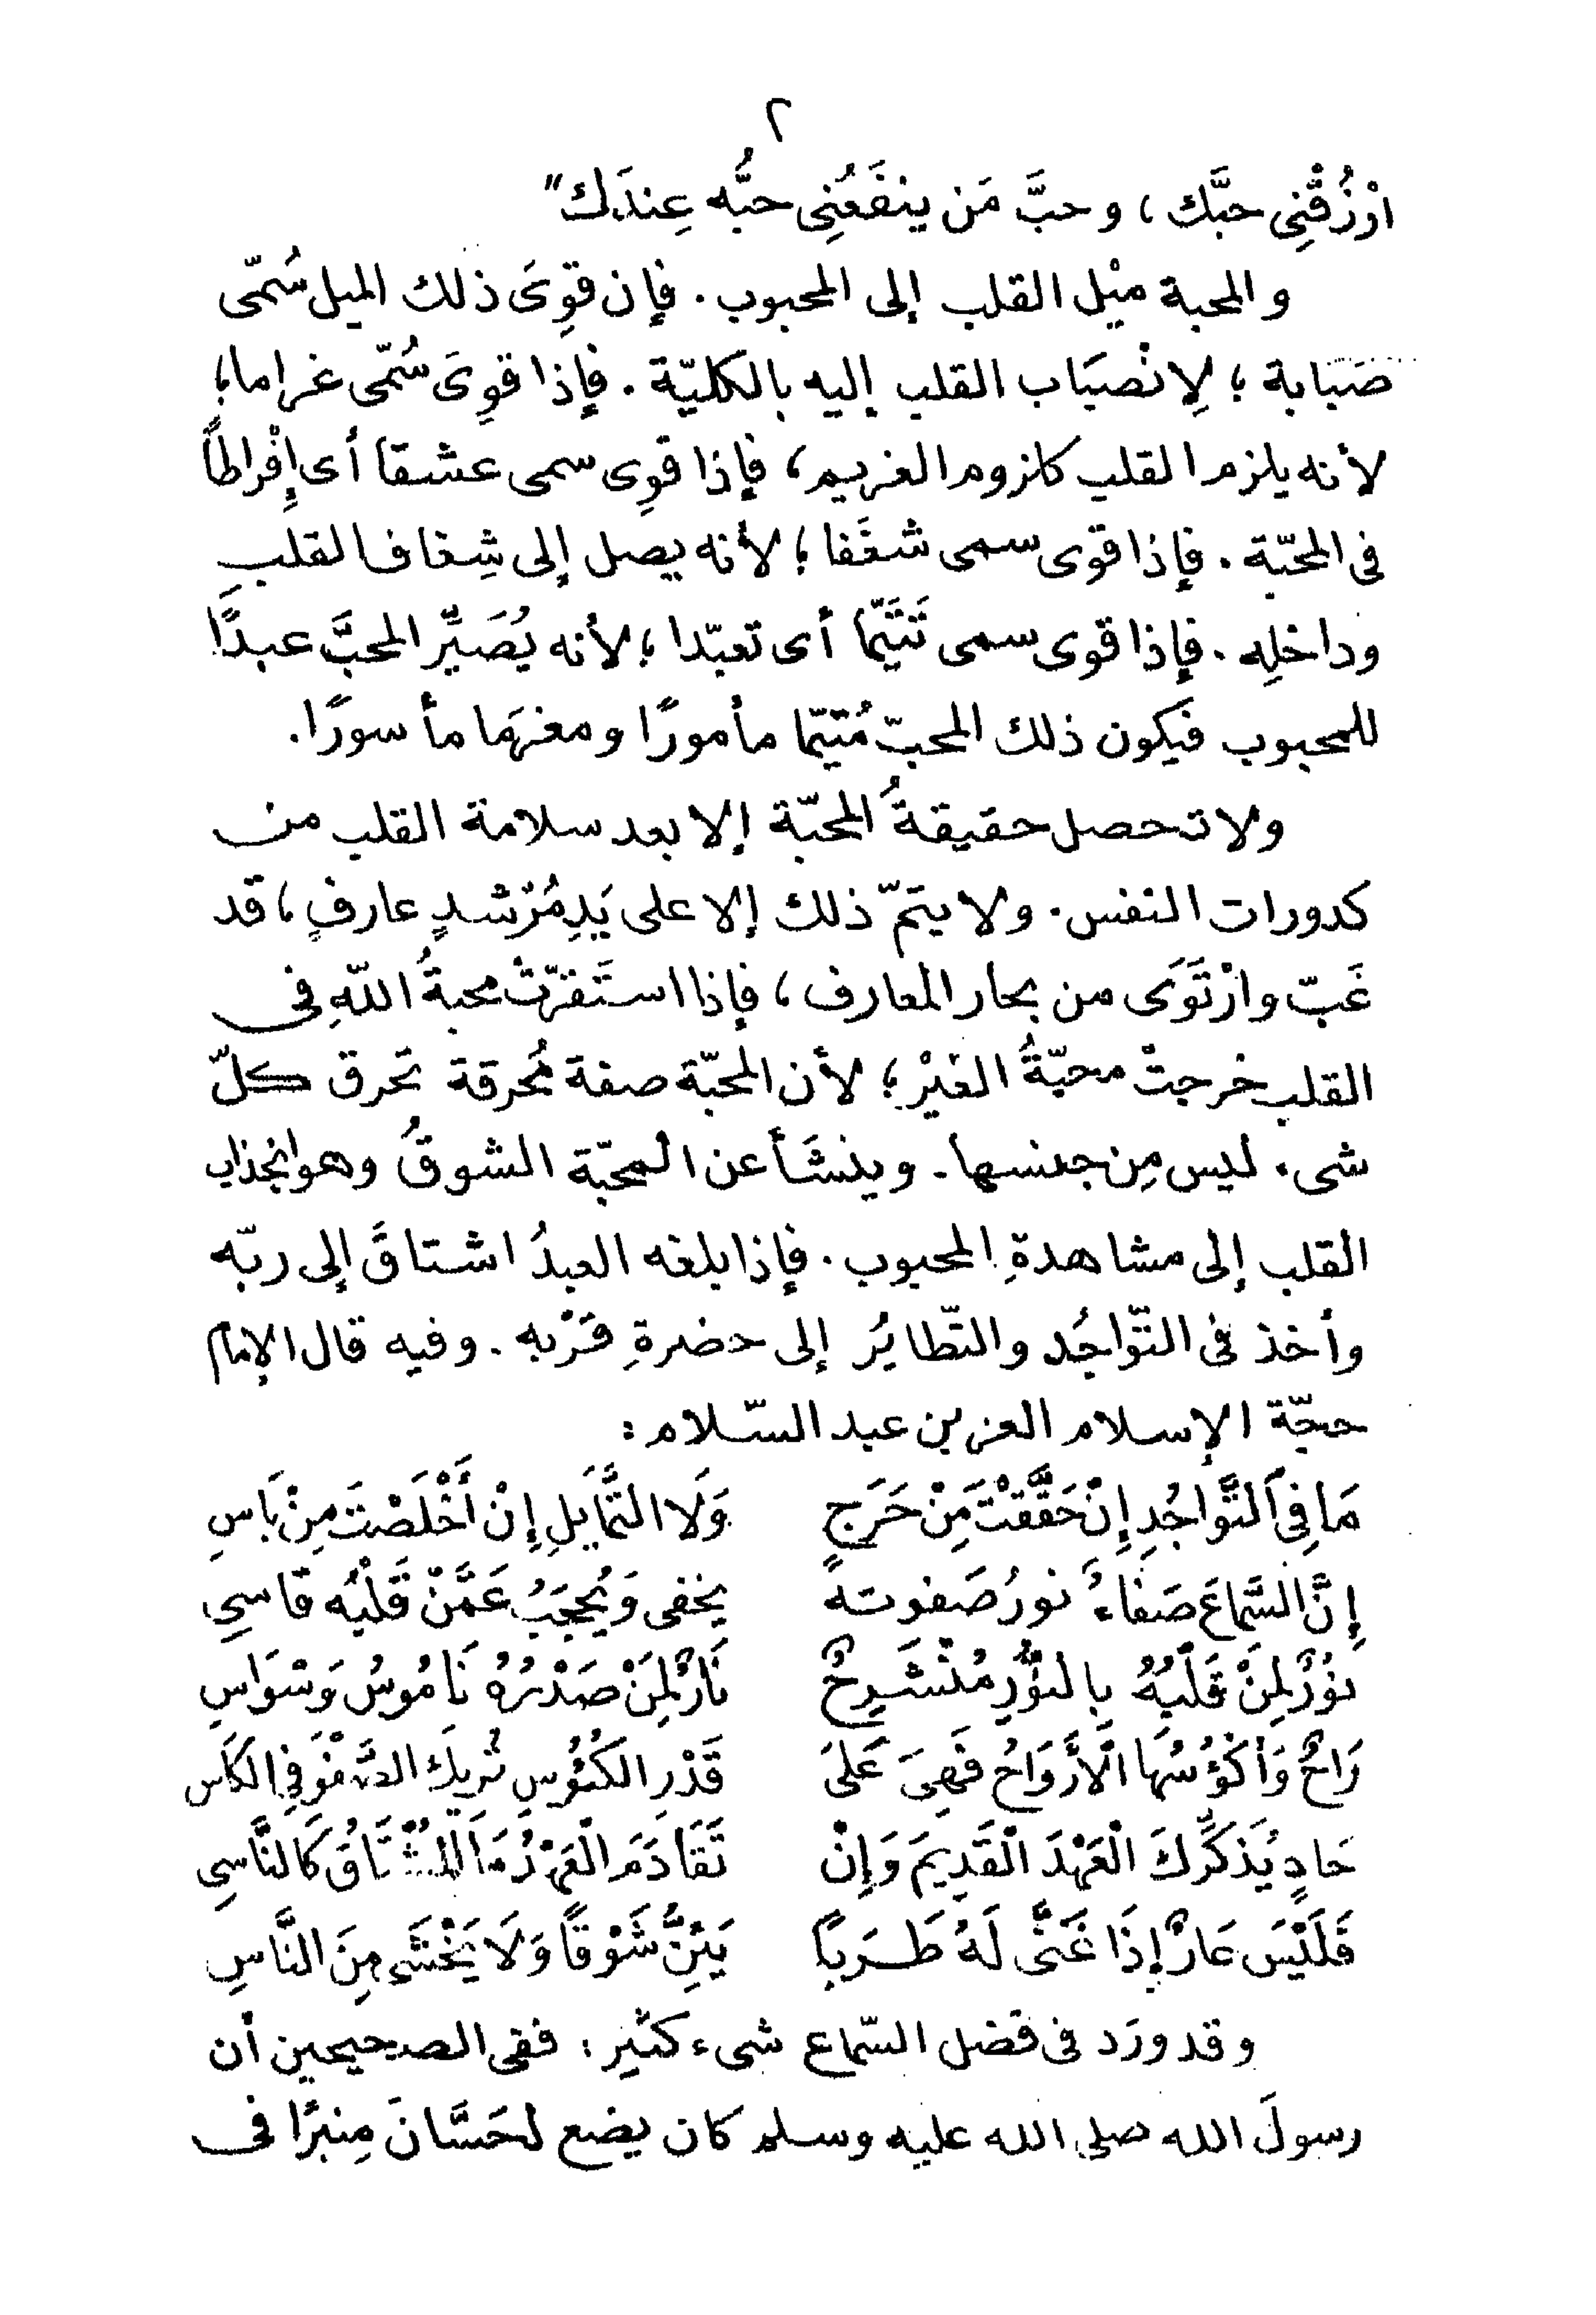 ٢
ارْزُقْنِى حبَّك، وحبَّ مَن ينفَعُنِى حبُّه عِندَك"
والمحبة ميْل القلب إلى المحبوب. فإن قوِىَ ذلك الميل سُمّى
صَبَابة؛ لِانْصبَاب القلب إليه بالكليّة. فإذا قوِىَ سُمّى غراما؛
لأنه يلزم القلب كلزوم الغريم، فإذا قوِى سمى عشقا أى إِفْراطاً
فى المحبّة. فإذا قوى سمى شغَفا؛ لأنه يصل إلى شِغاف القلبِ
وداخلِه. فإذا قوى سمى تَتَيّما أى تعبّدا؛ لأنه يُصَيِّر المحبَّ عبدًا
للمحبوب فيكون ذلك المحبّ مُتيّما مأمورًا ومغرَما مأسورًا.
ولا تحصل حقيقةُ المحبّة إلا بعد سلامة القلب من
كدورات النفس. ولا يتمّ ذلك إلا على يَدِ مُرْشدٍ عارفٍ، قد
عَبّ وارْتَوَى من بحار المعارف، فإذا استَقرّتْ محبةُ اللّهِ فى
القلب خرجتْ محبّةُ الغيْر؛ لأن المحبّة صفة مُحرقة تحرق كلّ
شىء ليس مِن جنسها. وينشَأ عن المحبّة الشوقُ وهو انجذاب
القلب إلى مشاهدةِ المحبوب. فإذا بلغه العبدُ اشتاقَ إلى ربّه
وأخذ فى التّواجُد والتّطايُر إلى حضرةِ قرْبه. وفيه قال الإمام
حجّة الإسلام العز بن عبد السّلام:
مَا فِى التَّوَاجُدِ إِنْ حَقَّقْتَ مِنْ حَرَجٍ وَلَا التَّمَايُلِ إِنْ أَخْلَصْتَ مِنْ بَاسِ
إِنَّ السَّمَاعَ صَفَاءٌ نورُ صَفوته يخفى وَيُحجَبُ عَمَّنْ قَلْبُه قاسىِ
نُوْرٌ لِمَنْ قَلْبُهُ بِالنُّوْرِ مُنْشَرِحٌ نَارٌ لِمَنْ صَدْرُهُ نَامُوسُ وَسْوَاسِ
رَاحٌ وَأكْؤُسُهَا الْأَرْوَاحُ فَهِىَ عَلىَ قَدْرِ الكُئُوسِ تُرِيكَ الصَّفْوَ فِى الكَاسِ
حَادٍ يُذَكِّرُكَ الْعَهْدَ الْقَدِيمَ وَإِنْ تَقَادَمَ الْعَهْدُ مَا الْمُشْتَاقُ كَالنَّاسِى
فَلَيْسَ عَارٌ إِذَا غَنَّى لَهُ طَرَبًا يَئِنُّ شَوْقًا وَلَا يَخْشَى مِنَ النَّاسِ
وقد ورَد فى فضل السّماع شىء كثير: ففى الصحيحين أن
رسولَ الله صلى الله عليه وسلم كان يضع لحَسَّانَ مِنبرًا فى